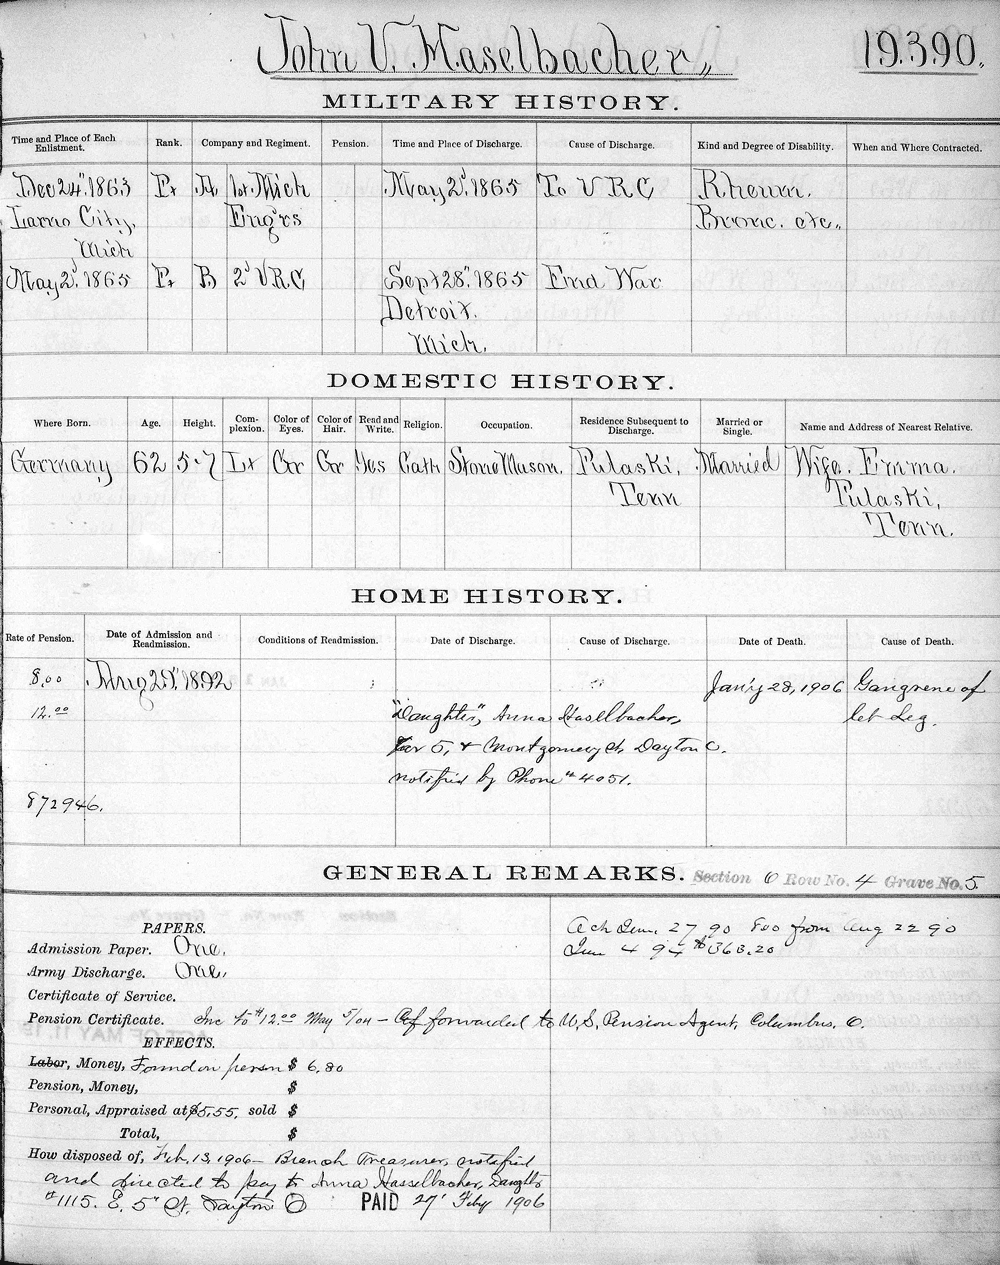 John V. Haselbacher,, 19390.
MILITARY HISTORY.
Time and Place of Each Enlistment. Rank. Company and Regiment. Pension. Time and Place of Discharge. Cause of Discharge. Kind and Degree of Disability. When and Where Contracted.
Dec 24" 1863 Pt H 1st Mich May 2d 1865 To V R C Rheum.
City, Engrs Bronc. etc.
Mich
May 2d 1865 Pt B 2d V.R.C Sept 28" 1865 End War
Detroit.
Mich.
DOMESTIC HISTORY.
Where Born. Age. Height. Complexion. Color of Eyes. Color of Hair. Read and Write. Religion. Occupation. Residence Subsequent to Discharge. Married or Single. Name and Address of Nearest Relative.
Germany 62 5-7 Lt Gr Gr Yes Cath Stone Mason Pulaski, Married Wife. Emma.
Tenn Pulaski,
Tenn.
HOME HISTORY.
Rate of Pension. Date of Admission and Readmission. Conditions of Readmission. Date of Discharge. Cause of Discharge. Date of Death. Cause of Death.
8.00 Jan'y 28, 1906 Gangrene of
12.00 "Daughter", Anna Haselbacher, Leg.
5, & Montgomery St Dayton O.
notified by Phone # 4051.
872946.
GENERAL REMARKS. Section 6 Row No. 4 Grave No. 5
PAPERS. 27 90 800 from Aug 22 90
Admission Paper. One. 4 94 $363.20
Army Discharge. One.
Certificate of Service.
Pension Certificate. Inc to $12.00 May 5/04 – forwarded to U.S. Pension Agent, Columbus, O.
EFFECTS.
Labor, Money, Found on person $ 6.80
Pension, Money, $
Personal, Appraised at $5.55, sold $
Total, $
How disposed of, Feb. 13, 1906 – Branch Treasurer, notified
and directed to pay to Anna Hasselbacher, Daughter
#1115. E. 5" St. Dayton O PAID 27' Feby 1906